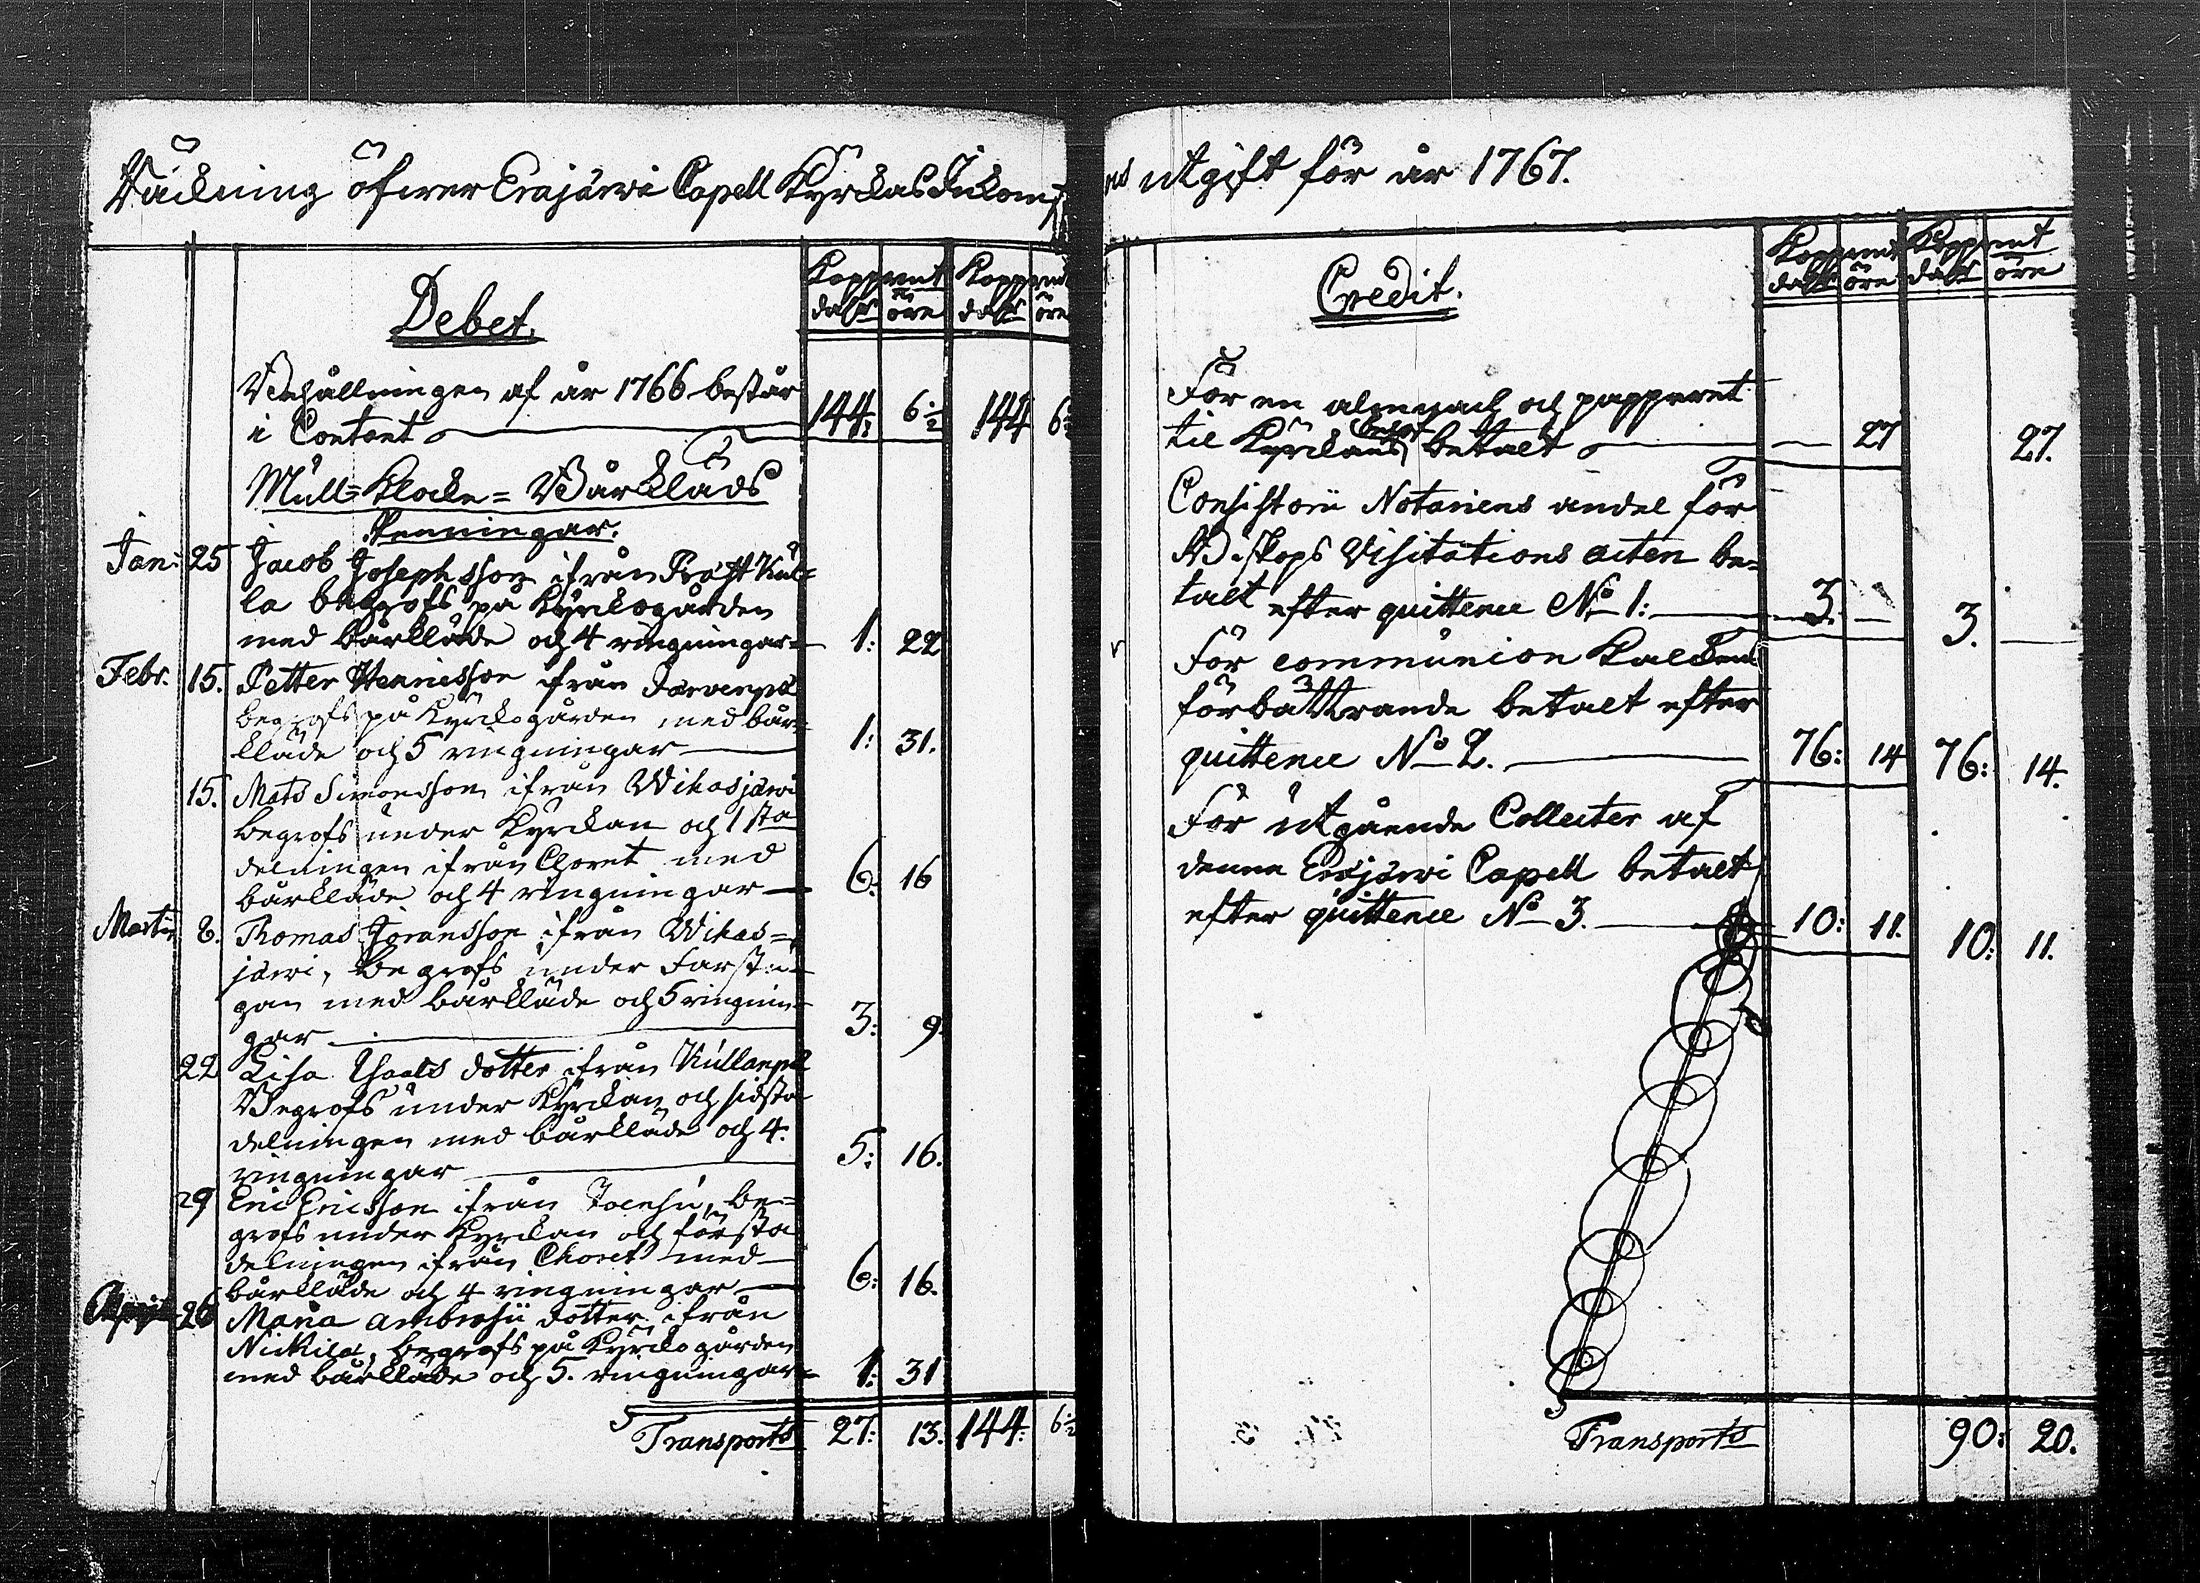 Räckning öfwer Erajärwi Capell Kyrckas Inkomst
Debet.
Kopp:mt Kopp:mt
dal:r öre dal:r öre
Behållningen af år 1766 består
i Contant 144: 6 1/2 144 6 1/2
Mull= Klocke= Bårkläds
Penningar.
Jan: 25 Jacob Josephsson ifrån Präst Kul=
la begrofs på Kyrckogården
med bårkläde och 4 ringningar 1: 22
Febr. 15. Petter Henricsson ifrån Järvenpä
begrofs på Kyrckogården med bår=
kläde och 5 ringningar 1: 31.
15. Mats Simonsson ifrån Wihasjärvi
begrofs under Kyrckan och 1sta
delningen ifrån Choret med
bårkläde och 4 ringningar 6: 16
Martii 8. Thomas Göransson ifrån Wihas=
järwi, begrofs under Farstu=
gan med bårkläde och 5 ringnin=
gar 3: 9.
22 Lisa Isaacs dotter ifrån Kullanpä
Begrofs under Kyrckan och sidsta
delningen med bårkläde och 4.
ringningar 5: 16.
29 Eric Ericsson ifrån Joensu, be=
grofs under Kyrckan och första
delningen ifrån Choret med
bårkläde och 4 ringningar 6: 16.
April 26 Maria Ambrosii dotter ifrån
Nickila, begrofs på Kyrckogården
med bårkläde och 5. ringningar 1: 31
Transports 27: 13. 144: 6 1/2
utgift för år 1767.
Credit.
Kopp:mt Kopp:mt
dal:r öre dal:r öre
För en almenach och papperet
til Kyrckans betalt 27 27.
Consistorii Notariens andel för
Biskops Visitations acten be=
talt efter quittence No 1: 3. 3.
För communion Kalckens
förbättrande betalt efter
quittence No 2. 76: 14 76: 14.
För utgående Collecter af
denna Erajärwi Capell betalt
efter quittence No 3. 10: 11. 10: 11.
Transports 90: 20.